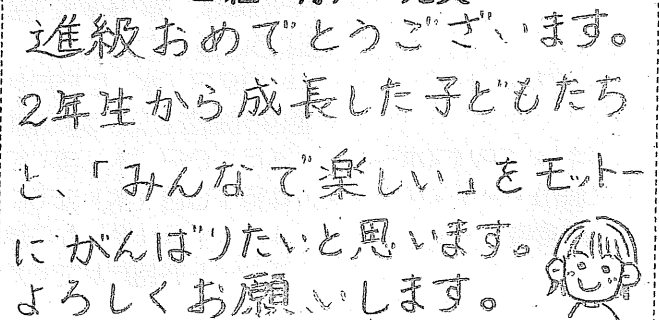 進級おめでとうございます。
2年生から成長した子どもたち
と、「みんなで楽しい」をモットー
にがんばりたいと思います。
よろしくお願いします。